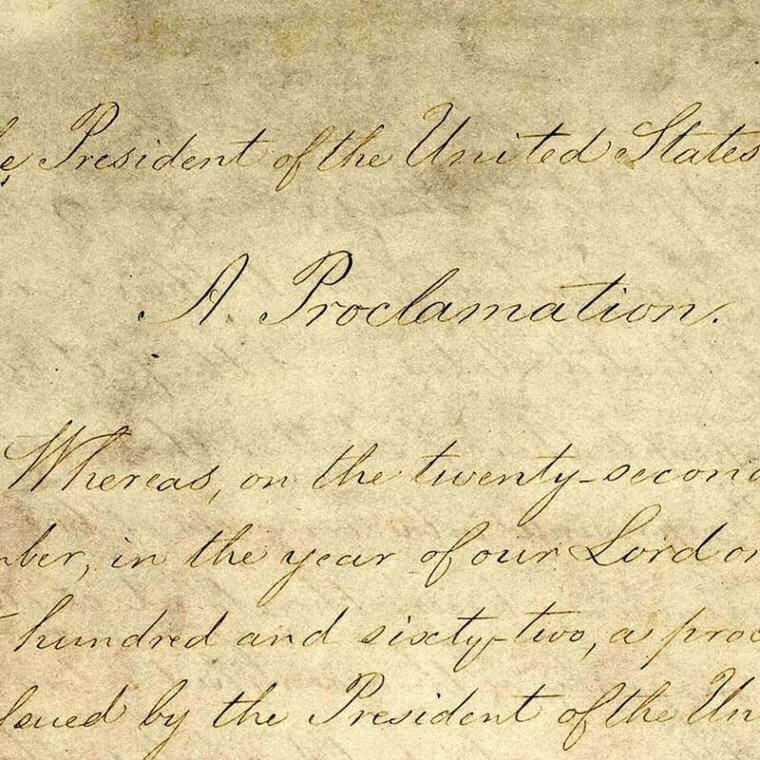 e President of the United States
A Proclamation.
Whereas, on the twenty-second
mber, in the year of our Lord on
t hundred and sixty-two, a proc
ssued by the President of the Un